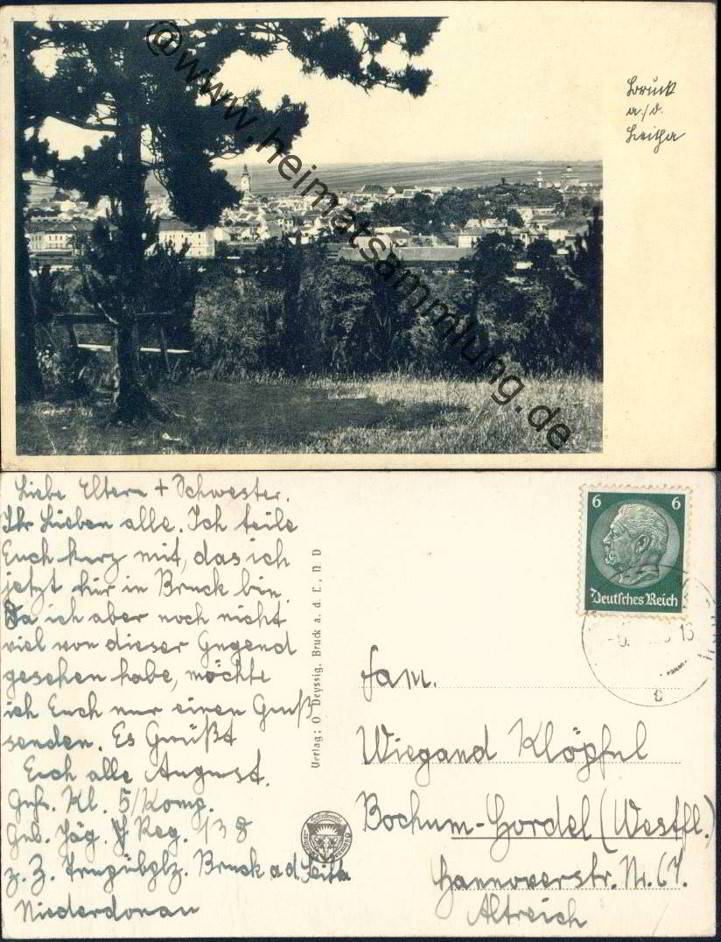 @www.heimatsammlung.de
Bruck
a./d.
Leitha
Liebe Eltern + Schwester.
Ihr Lieben alle. Ich teile
Euch kurz mit, das ich
jetzt hir in Bruck bin.
Da ich aber noch nicht
viel von dieser Gegend
gesehen habe, möchte
ich Euch nur einen Gruß
senden. Es Grüßt
Euch alle August.
Gefr. Kl. 5/Komp.
Geb. Jäg. Reg. 138
z. Z. Bruck a.d. Leitha
Niederdonau
Verlag: O Deyssig. Bruck a. d. L., N D
6 6
Deutsches Reich
Fam.
Wiegand Klöpfel
Bochum-Hordel (Westfl.)
Hannoverstr. Nr. 67.
Altreich